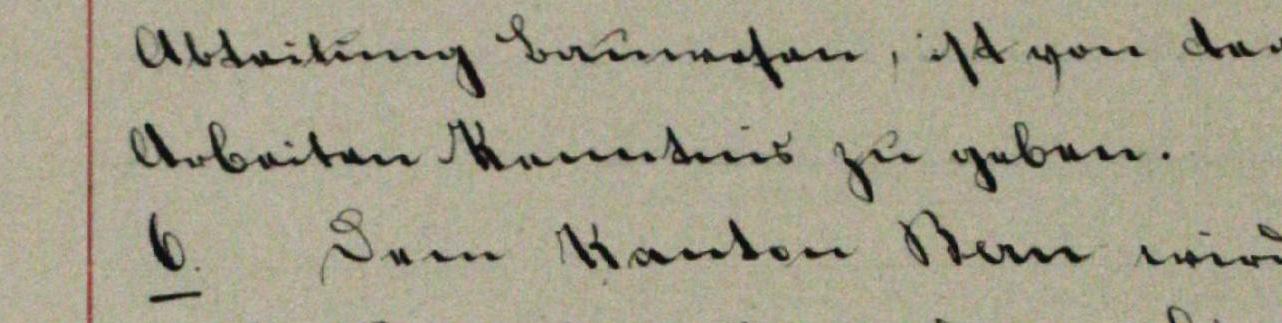 Abteilung Bauwesen, ist von der
Arbeiten Kenntnis zu geben.
6. Dem Kanton Bern wird